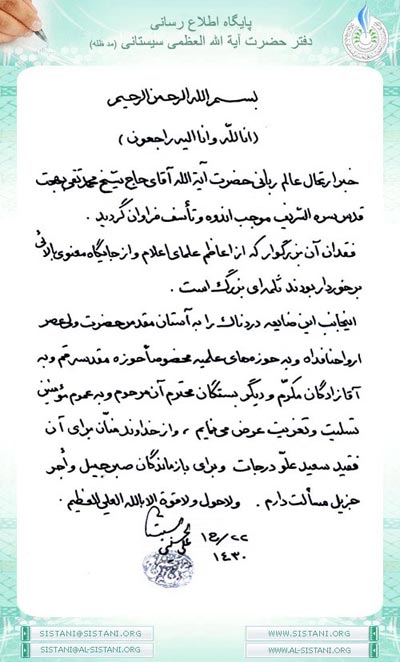 پایگاه اطلاع رسانی
دفتر حضرت آیة الله العظمی سیستانی (مد ظله)
بسم الله الرحمن الرحیم
(انا للّه وانا الیه راجعون)
خبر ارتحال عالم ربانی حضرت آیة الله آقای حاج شیخ محمد تقی بهجت
قدس سره الشریف موجب اندوه و تأسف فراوان گردید .
فقدان آن بزرگوار که از اعاظم علمای اعلام و از جایگاه معنوی بالائی
برخوردار بودند ثلمه‌ای بزرگ است .
اینجانب این ضایعه دردناک را به آستان مقدس حضرت ولی عصر
ارواحنا فداه و به حوزه‌های علمیه مخصوصاً حوزه مقدسه قم و به
آقازادگان مکرّم و دیگر بستگان محترم آن مرحوم و به عموم مؤمنین
تسلیت و تعزیت عرض می‌نمایم ، و از خداوند منّان برای آن
فقید سعید علوّ درجات و برای بازماندگان صبر جمیل و أجر
جزیل مسألت دارم . ولا حول ولا قوة الا بالله العلی العظیم .
۲۲/ج۱
۱۴۳۰
علی الحسینی السیستانی
SISTANI@SISTANI.ORG
WWW.SISTANI.ORG
SISTANI@AL-SISTANI.ORG
WWW.AL-SISTANI.ORG